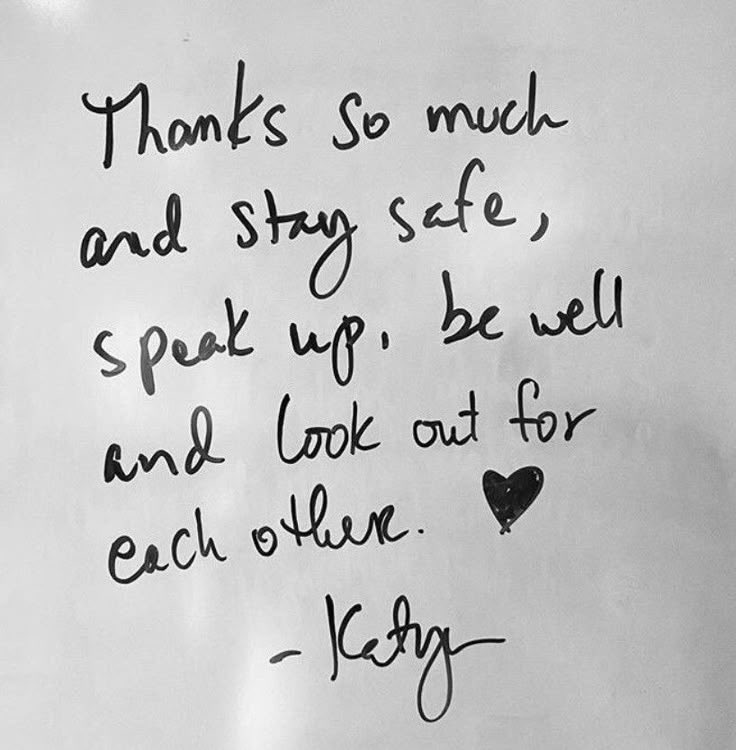 Thanks so much
and stay safe,
speak up, be well
and look out for
each other. ♥
- Katya